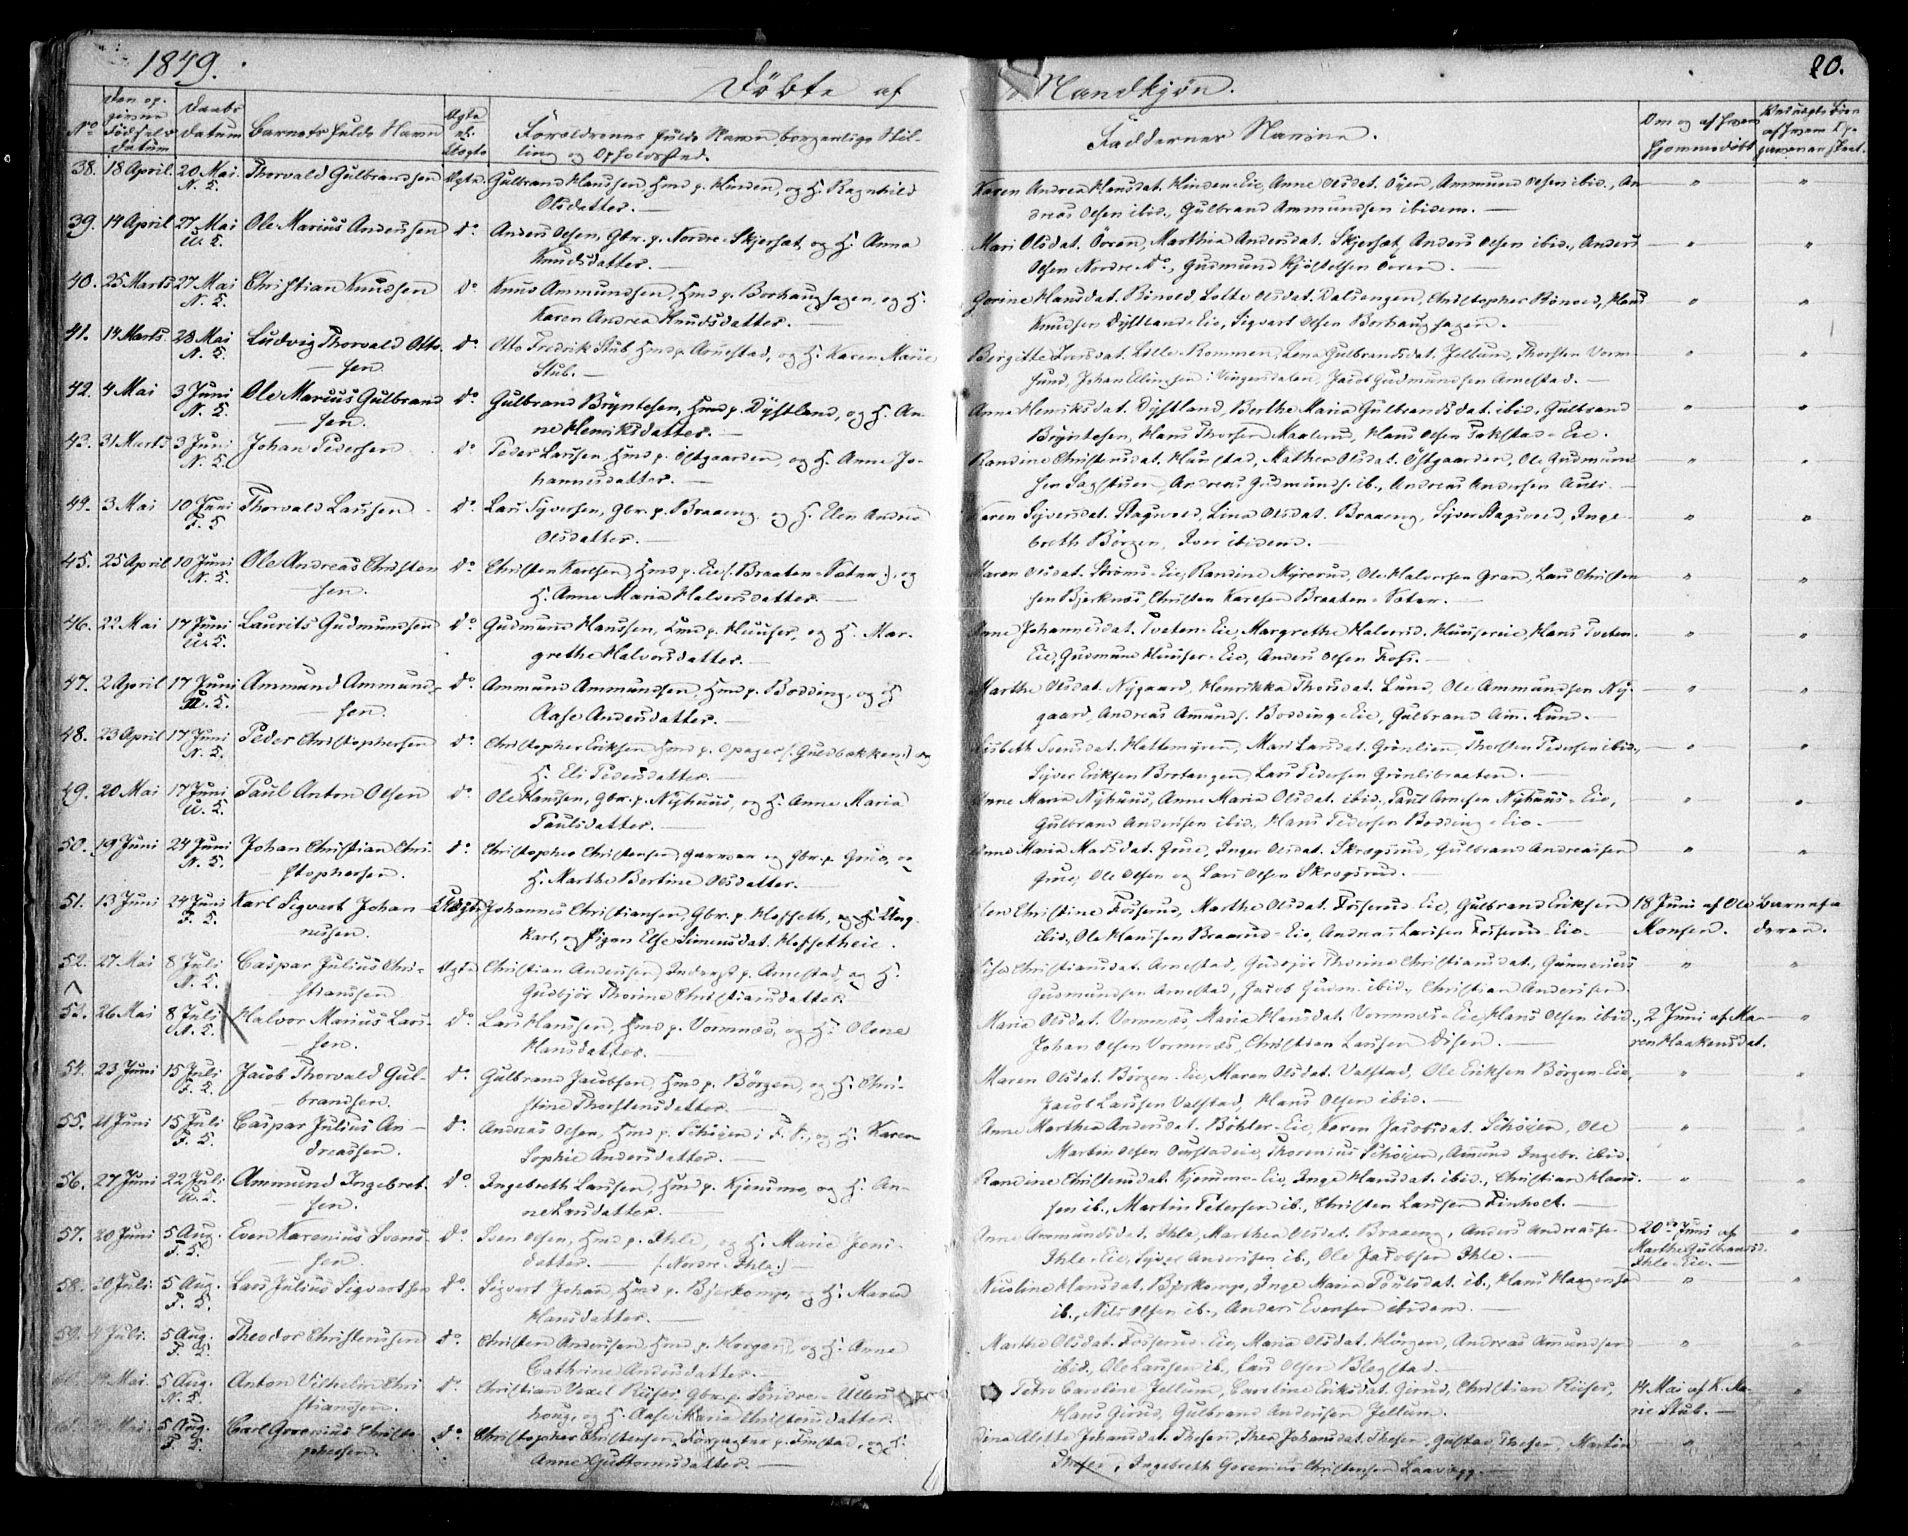 1849.
Døbte af Mandkjøn.
20.
No
Den opgivne Fødselsdatum
Daabsdatum
Barnets fulde Navn
Ægte el. Uægte
Forældrenes fulde Navn, borgerlige Stilling og Opholdssted.
Faddernes Navne.
Om og af hvem hjemmedøbt
38. 18 April. 20 Mai. N. 5. Thorvald Gulbrandsen Ægte. Gulbrand Hansen, Hmd p. Hinden, og H. Ragnhild
Olsdatter.
Karen Andrea Hansdat. Hinden-Eie, Anne Olsdat. Øyen, Ammund Olsen ibid., An-
dreas Olsen ibid., Gulbrand Ammundsen ibidem.
39. 14 April 27 Mai Ole Marius Andersen do. Anders Olsen, Gbr. p. Nordre-Skjersæt, og H. Anne
Knudsdatter.
Mari Olsdat. Ören, Marthea Andersdat. Skjersæt, Anders Olsen ibid., Anders
Olsen Nordre-do., Gudmund Kjöstelsen Ören.
40. 25 Marts 27 Mai N. 5. Christian Knudsen do Knud Ammundsen, Hmd p. Borhaughagen, og H.
Karen Andrea Knudsdatter.
Gorine Hansdat. Binold, Lotte Olsdat. Dalsengen, Christopher Binold, Hans
Knudsen Dystland-Eie, Sigvart Olsen Borhaughagen.
41. 14 Marts. 28 Mai N. 5. Ludvig Thorvald Otto-
sen.
do. Otto Fredrik Stub, Hmd p. Arnestad, og H. Karen Marie
Stub.
Birgitte Iversdat. Lille-Rommen, Lena Gulbrandsdat. Jellum, Thorsten Vorm-
sund, Johan Ellingsen i Vingersdalen, Jacob Gudmundsen Arnestad.
42. 4 Mai 3 Juni N. 5. Ole Marius Gulbrand-
sen.
do. Gulbrand Bryntesen, Hmd p. Dystland, og H. An-
ne Henriksdatter.
Anne Henriksdat. Dystland, Berthe Maria Gulbrandsdat. ibid., Gulbrand
Bryntesen, Hans Thorsen Maalerud, Hans Olsen Fakstad-Eie.
43. 31 Marts 3 Juni N. 5. Johan Pedersen do Peder Larsen, Hmd p. Østgaarden, og H. Anne Jo-
hannesdatter.
Randine Christensdat. Hunstad, Mathea Olsdat. Østgaarden, Ole Gudmund-
sen Sagstuen, Andreas Gudmunds. ib., Andreas Andersen Auli.
44. 3 Mai 10 Juni F. 5 Thorvald Larsen do. Lars Syversen, Gbr. p. Braaeng, og H. Elen Andrea
Olsdatter.
Karen Syversdat. Stagvold, Lina Olsdat. Braaeng, Syver Stagvold, Inge-
breth Börgen, Iver ibidem.
45. 25 April 10 Juni N. 5. Ole Andreas Christen-
sen.
do. Christen Karlsen, Hmd p. Eie (: Braaten-Sætra :), og
H. Anne Maria Halvorsdatter.
Maren Olsdat. Ströms-Eie, Randine Myrerud, Ole Halvorsen Gran, Lars Christen-
sen Bjerknæs, Christen Karlsen Braaten-Sæter.
46. 22 Mai 17 Juni Laurits Gudmundsen do. Gudmund Hansen, Hmd p. Huuser, og H. Mar-
grethe Halvorsdatter.
Anne Johannesdat. Tveten-Eie, Margrethe Halvorsd. Huusereie, Hans Tveten-
Eie, Gudmund Huuser-Eie, Anders Olsen Foss.
47. 2 April 17 Juni Ammund Ammund-
sen.
do. Ammund Ammundsen, Hmd p. Bodding, og H
Aase Andersdatter.
Marthe Olsdat. Nygaard, Henrikka Thorsdat. Lund, Ole Ammundsen Ny-
gaard, Andreas Amunds. Bodding-Eie, Gulbrand Am. Lund.
48. 23 April 17 Juni N. 5. Peder Christophersen do. Christopher Eriksen Hmd p. Opager (: Guldbakken :) og
H. Eli Pedersdatter.
Lisbeth Svendsdat. Hattemyren, Mari Larsdat. Grönlien, Thorsten Pedersen ibid.,
Syver Eriksen Brotangen, Lars Pedersen Grönlibraaten.
49. 20 Mai 17 Juni Paul Anton Olsen do. Ole Hansen, Gbr. p. Nyhuus, og H. Anne Maria
Paulsdatter.
Anne Maria Nyhuus, Anne Maria Olsdat. ibid., Paul Arnesen Nyhuus-Eie,
Gulbrand Andersen ibid., Hans Pedersen Bodding-Eie.
50. 19 Juni 24 Juni N. 5. Johan Christian Chri-
stophersen.
do. Christopher Christensen, Garver og Gbr. p. Grue, og
H. Marthe Bertine Olsdatter.
Anne Maria Madsdat. Grue, Inger Olsdat. Skrogsrud, Gulbrand Andreassen
Grue, Ole Olsen og Lars Olsen Skrogsrud.
51. 13 Juni 24 Juni F. 5. Karl Sigvart Johan-
nesen.
Uægte Johannes Christiansen, Gbr. p. Hofseth, og Ung-
karl, og Pigen Else Simensdat. Hofsetheie.
Elen Christine Fosserud, Marthe Olsdat. Fosserud-Eie, Gulbrand Eriksen
ibid., Ole Hansen Braarud-Eie, Andreas Larsen Fosserud-Eie.
18 Juni af Ole
Monsen.
Barnefa-
deren.
52. 27 Mai 8 Juli N. 5. Caspar Julius Chri-
stiansen
Ægte Christian Andersen, Inderst p. Arnestad, og H.
Gudbjör Thorine Christiansdatter.
Lise Christiansdat. Arnestad, Gudbjör Thorine Christiansdat., Gunnerius
Gudmundsen Arnestad, Jacob Gudm. ibid., Christian Andersen.
53. 26 Mai 8 Juli N. 5. Halvor Marius Lar-
sen.
do. Lars Hansen, Hmd p. Vormnæs, og H. Olene
Hansdatter.
Marie Olsdat. Vormnæs, Maria Hansdat. Vormnæs-Eie, Hans Olsen ibid.,
Johan Olsen Vormnæs, Christian Larsen Disen.
2 Juni af Ma-
ren Haakensdat.
54. 23 Juni 15 Juli Jacob Thorvald Gul-
brandsen.
do. Gulbrand Jacobsen, Hmd p. Börgen, og H. Chri-
stine Thorstensdatter.
Maren Olsdat. Börgen-Eie, Maren Olsdat. Valstad, Ole Eriksen Börgen-Eie,
Jacob Larsen Valstad, Hans Olsen ibid.
55. 21 Juni 15 Juli F. 5. Caspar Julius An-
dreassen.
do. Andreas Olsen, Hmd p. Schöien i F. S., og H. Karen
Sophie Andersdatter.
Anne Marthea Andersdat. Böhler-Eie, Karen Jacobsdat. Schöien, Ole
Martin Olsen Ourstadeie, Thorenius Schöien, Amund Ingebr. ibid.
56. 27 Juni 22 Juli Ammund Ingebret-
sen.
do. Ingebreth Larsen, Hmd p. Kjensmo, og H. An-
ne Larsdatter.
Randine Christensdat. Kjensmo-Eie, Inge Hansdat. ibid., Christian Han-
sen ib., Martin Petersen ib., Christen Larsen Finholt.
57. 20 Juni 5 Aug. F. 5. Even Karenius Svend-
sen.
do. Sven Olsen, Hmd p. Ihle, og H. Marie Jens-
datter. (: Nordre-Ihle :)
Anne Ammundsdat. Ihle, Marthea Olsdat. Braaeng, Anders Andreassen
Ihle-Eie, Syver Andersen ib., Ole Jacobsen Ihle.
20de Juni af
Marthe Gulbrandsd.
Ihle-Eie.
58. 10 Juli. 5 Aug. F. 5. Lars Julius Sigvartsen do. Sigvart Johan, Hmd p. Bjerkomp, og H. Maria
Hansdatter.
Nicoline Hansdat. Bjerkomp, Inge Maria Poulsdat. ib., Hans Haagensen
ib., Nils Olsen ib., Anders Evensen ibidem.
59. 4 Juli. 5 Aug. Theodor Christensen do. Christen Andersen, Hmd p. Horgen, og H. Anne
Cathrine Andersdatter.
Marthe Olsdat. Fosserud-Eie, Maria Olsdat. Hörgen, Andreas Amundsen
ibid., Ole Larsen ib., Lars Olsen Blegstad.
60. Mai. 5 Aug. N. 5. Anton Vilhelm Chri-
stiansen.
do. Christian Vexel Riiser, Gbr. p. Söndre-Ullers-
houg, og H. Aase Maria Christensdatter.
Petro Caroline Jellum, Caroline Eriksdat. Girud, Christian Riiser,
Hans Girud, Gulbrand Andersen Jellum.
14 Mai af K. Ma-
rie Stub.
Mai 5 Aug. Carl Gorenius Christo-
phersen.
do. Christopher Christensen, Forpagter p. Finstad, og H.
Anne Guttormsdatter.
Dina Alette Johansdat. Thesen, Thea Johansdat. Thesen, Gustav Thesen, Martin
Thesen, Ingebreth Gorenius Christensen Laavegg.